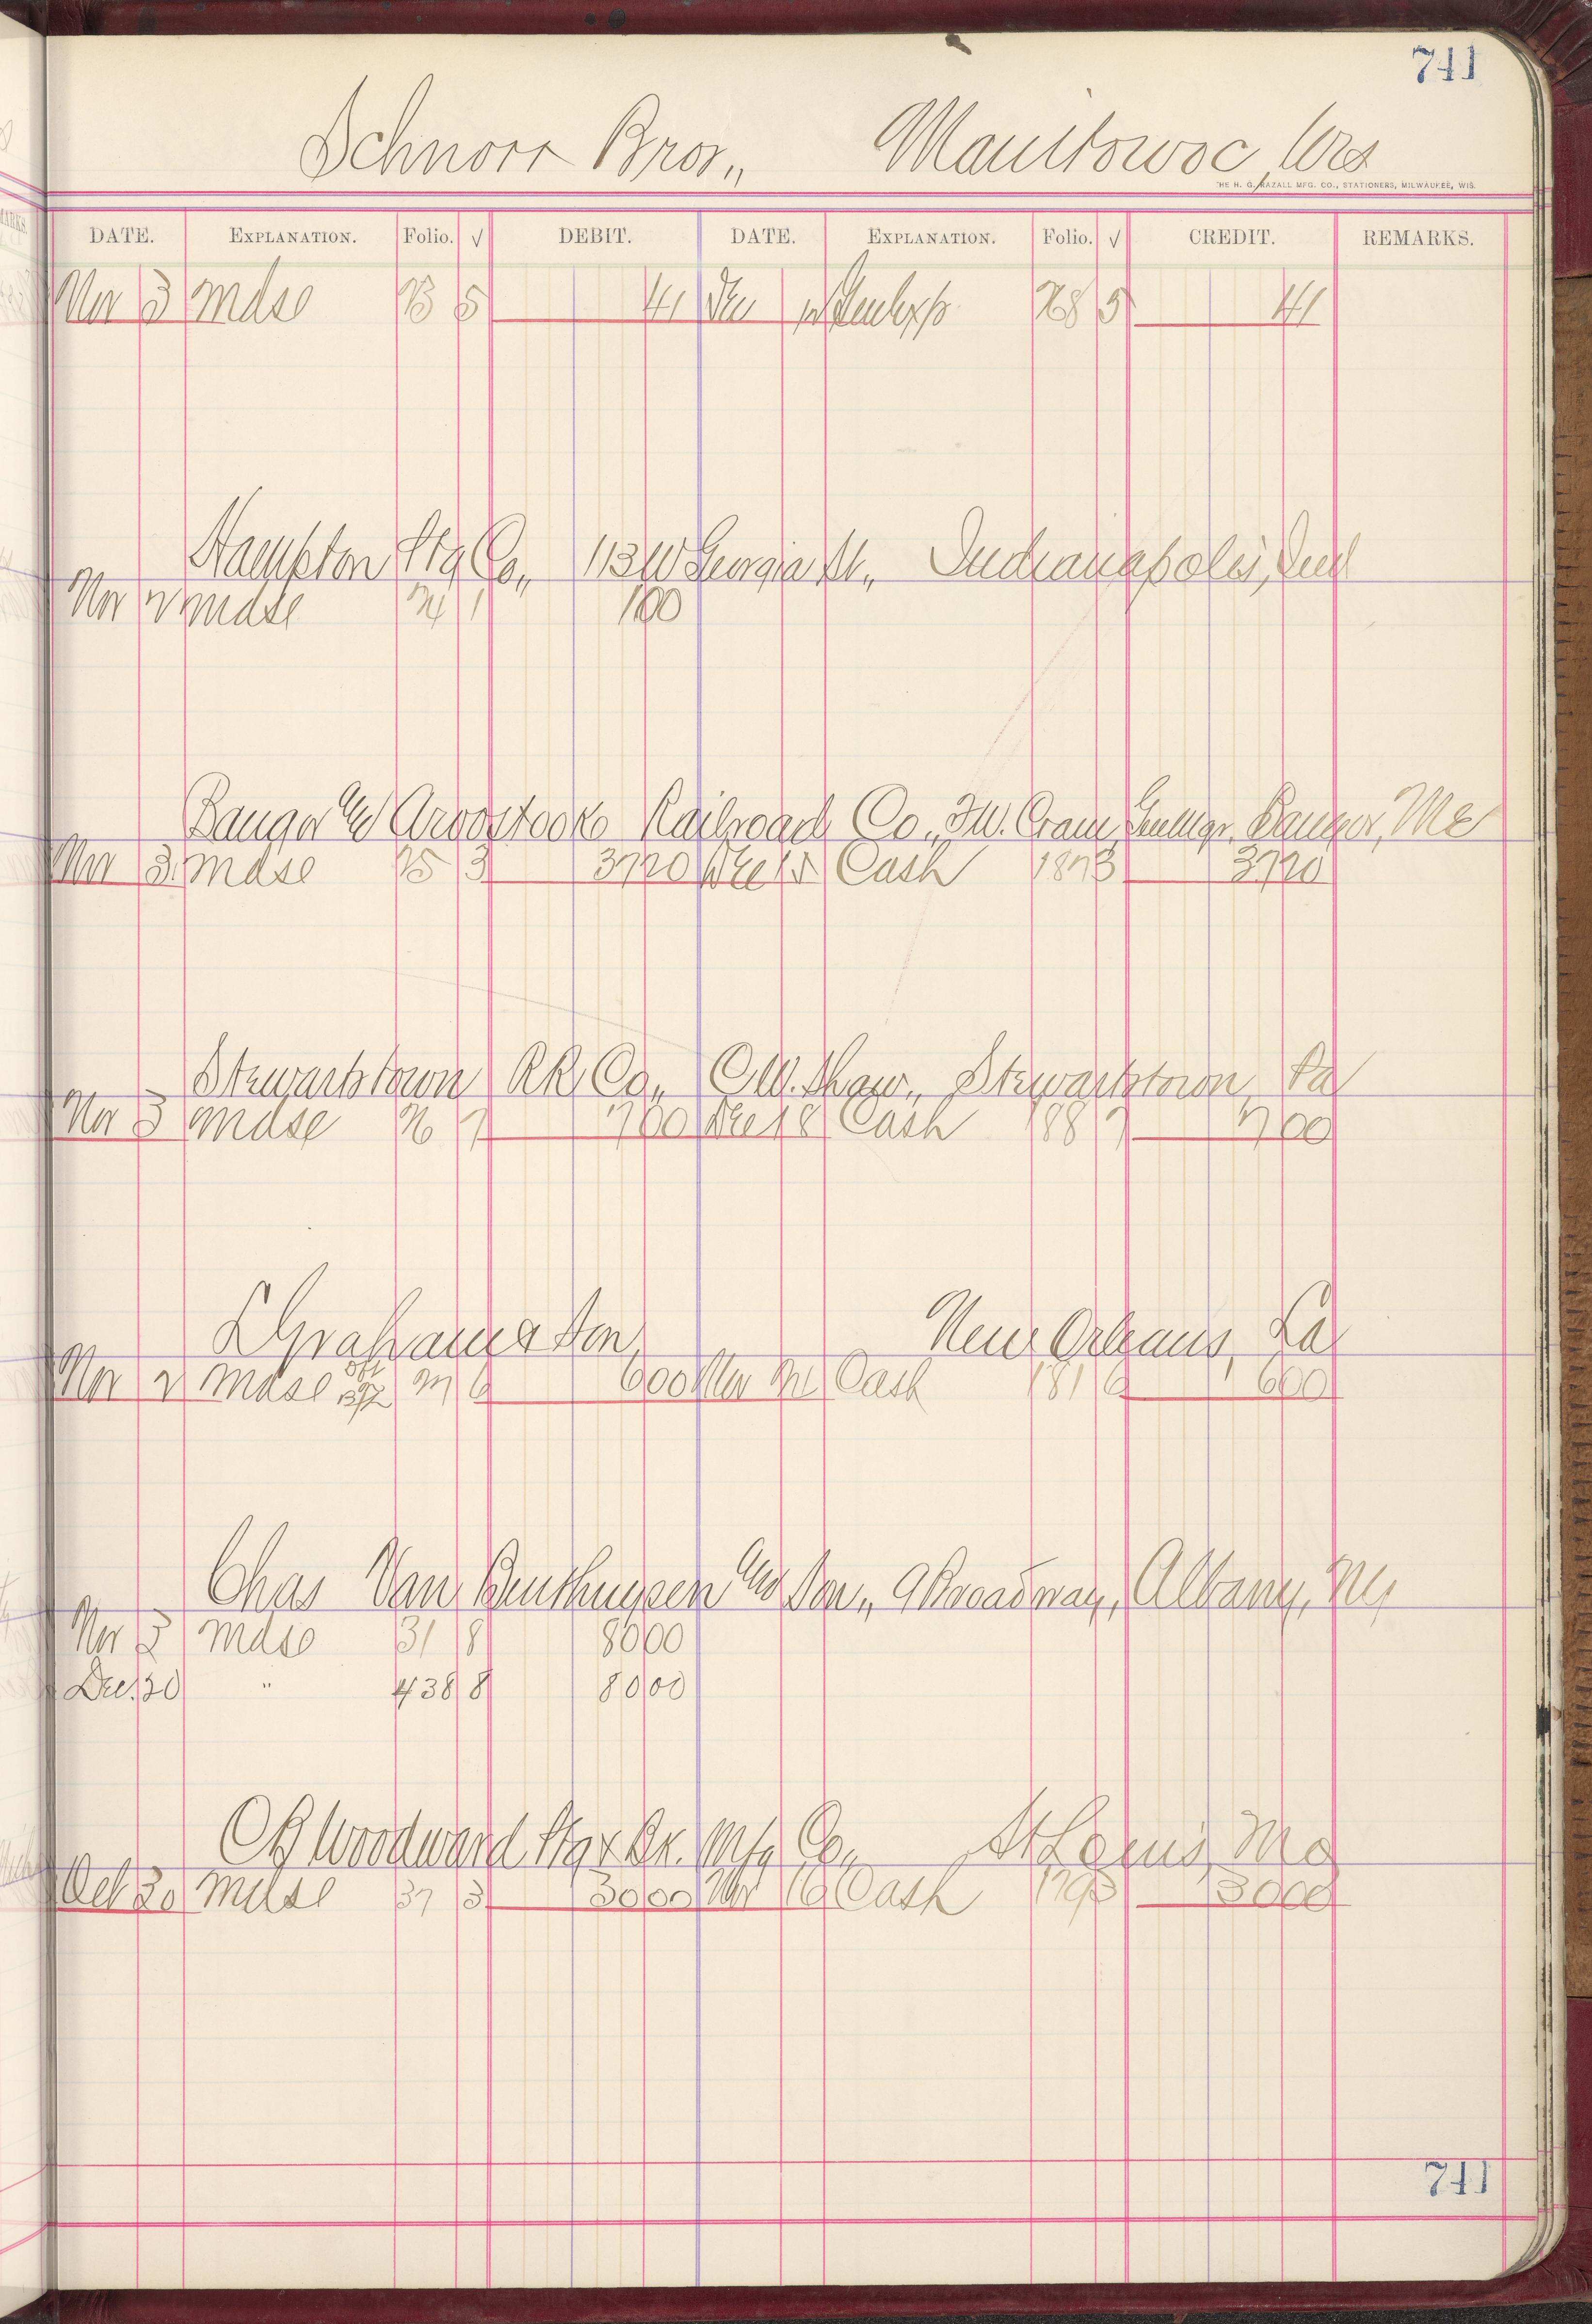 741
Schnorr Bros., Manitowoc, Wis
THE H. G. RAZALL MFG. CO., STATIONERS, MILWAUKEE, WIS.
DATE. EXPLANATION. Folio. √ DEBIT. DATE. EXPLANATION. Folio. √ CREDIT. REMARKS.
Nov 3 Mdse 5 41 Dec 5 41
Hampton Ptg Co., 113 W Georgia St., Indianapolis, Ind
Nov 2 Mdse 24 1 100
Bangor & Aroostook Railroad Co., F.W. Cram, Genl Mgr. Bangor, Me
Nov 3 Mdse 25 3 3720 Dec 15 Cash 187 3 3720
Stewartstown RR Co., C.W. Shaw, Stewartstown, Pa
Nov 3 Mdse 26 7 700 Dec 18 Cash 188 7 700
L Graham & Son, New Orleans, La
Nov 2 Mdse 6 600 Nov Cash 181 6 600
Chas Van Benthuysen & Son., 9 Broadway, Albany, NY
Nov 3 Mdse 31 8 8000
Dec. 20 " 438 8 8000
CB Woodward Ptg & Bk. Mfg Co., St Louis, Mo
Oct 30 Mdse 37 3 3000 Nov 16 Cash 179 3 3000
741